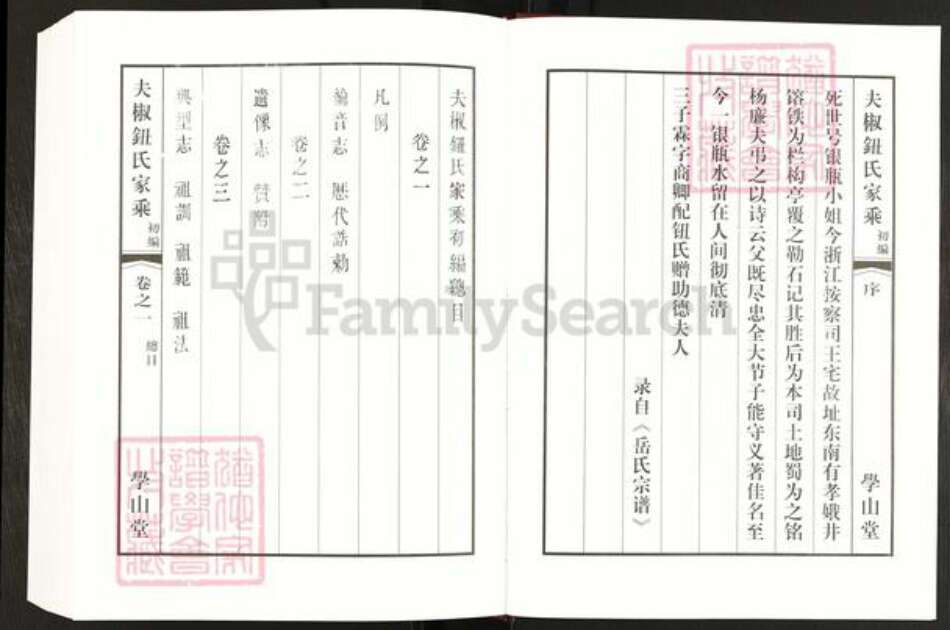 夫椒鈕氏家乘 初编
序
學山堂
死世号银瓶小姐今浙江按察司王宅故址东南有孝娥井
镕铁为栏构亭覆之勒石记其胜后为本司土地蜀为之铭
杨廉夫弔之以诗云父既尽忠全大节子能守义著佳名至
今一银瓶水留在人间彻底清
三子霖字商卿配钮氏赠助德夫人
录自《岳氏宗谱》
夫椒鈕氏家乘初編總目
卷之一
凡例
綸音志 歷代誥勅
卷之二
遺像志 贊附
卷之三
典型志 祖訓 祖範 祖法
夫椒鈕氏家乘 初编
卷之一 總目
學山堂
FamilySearch